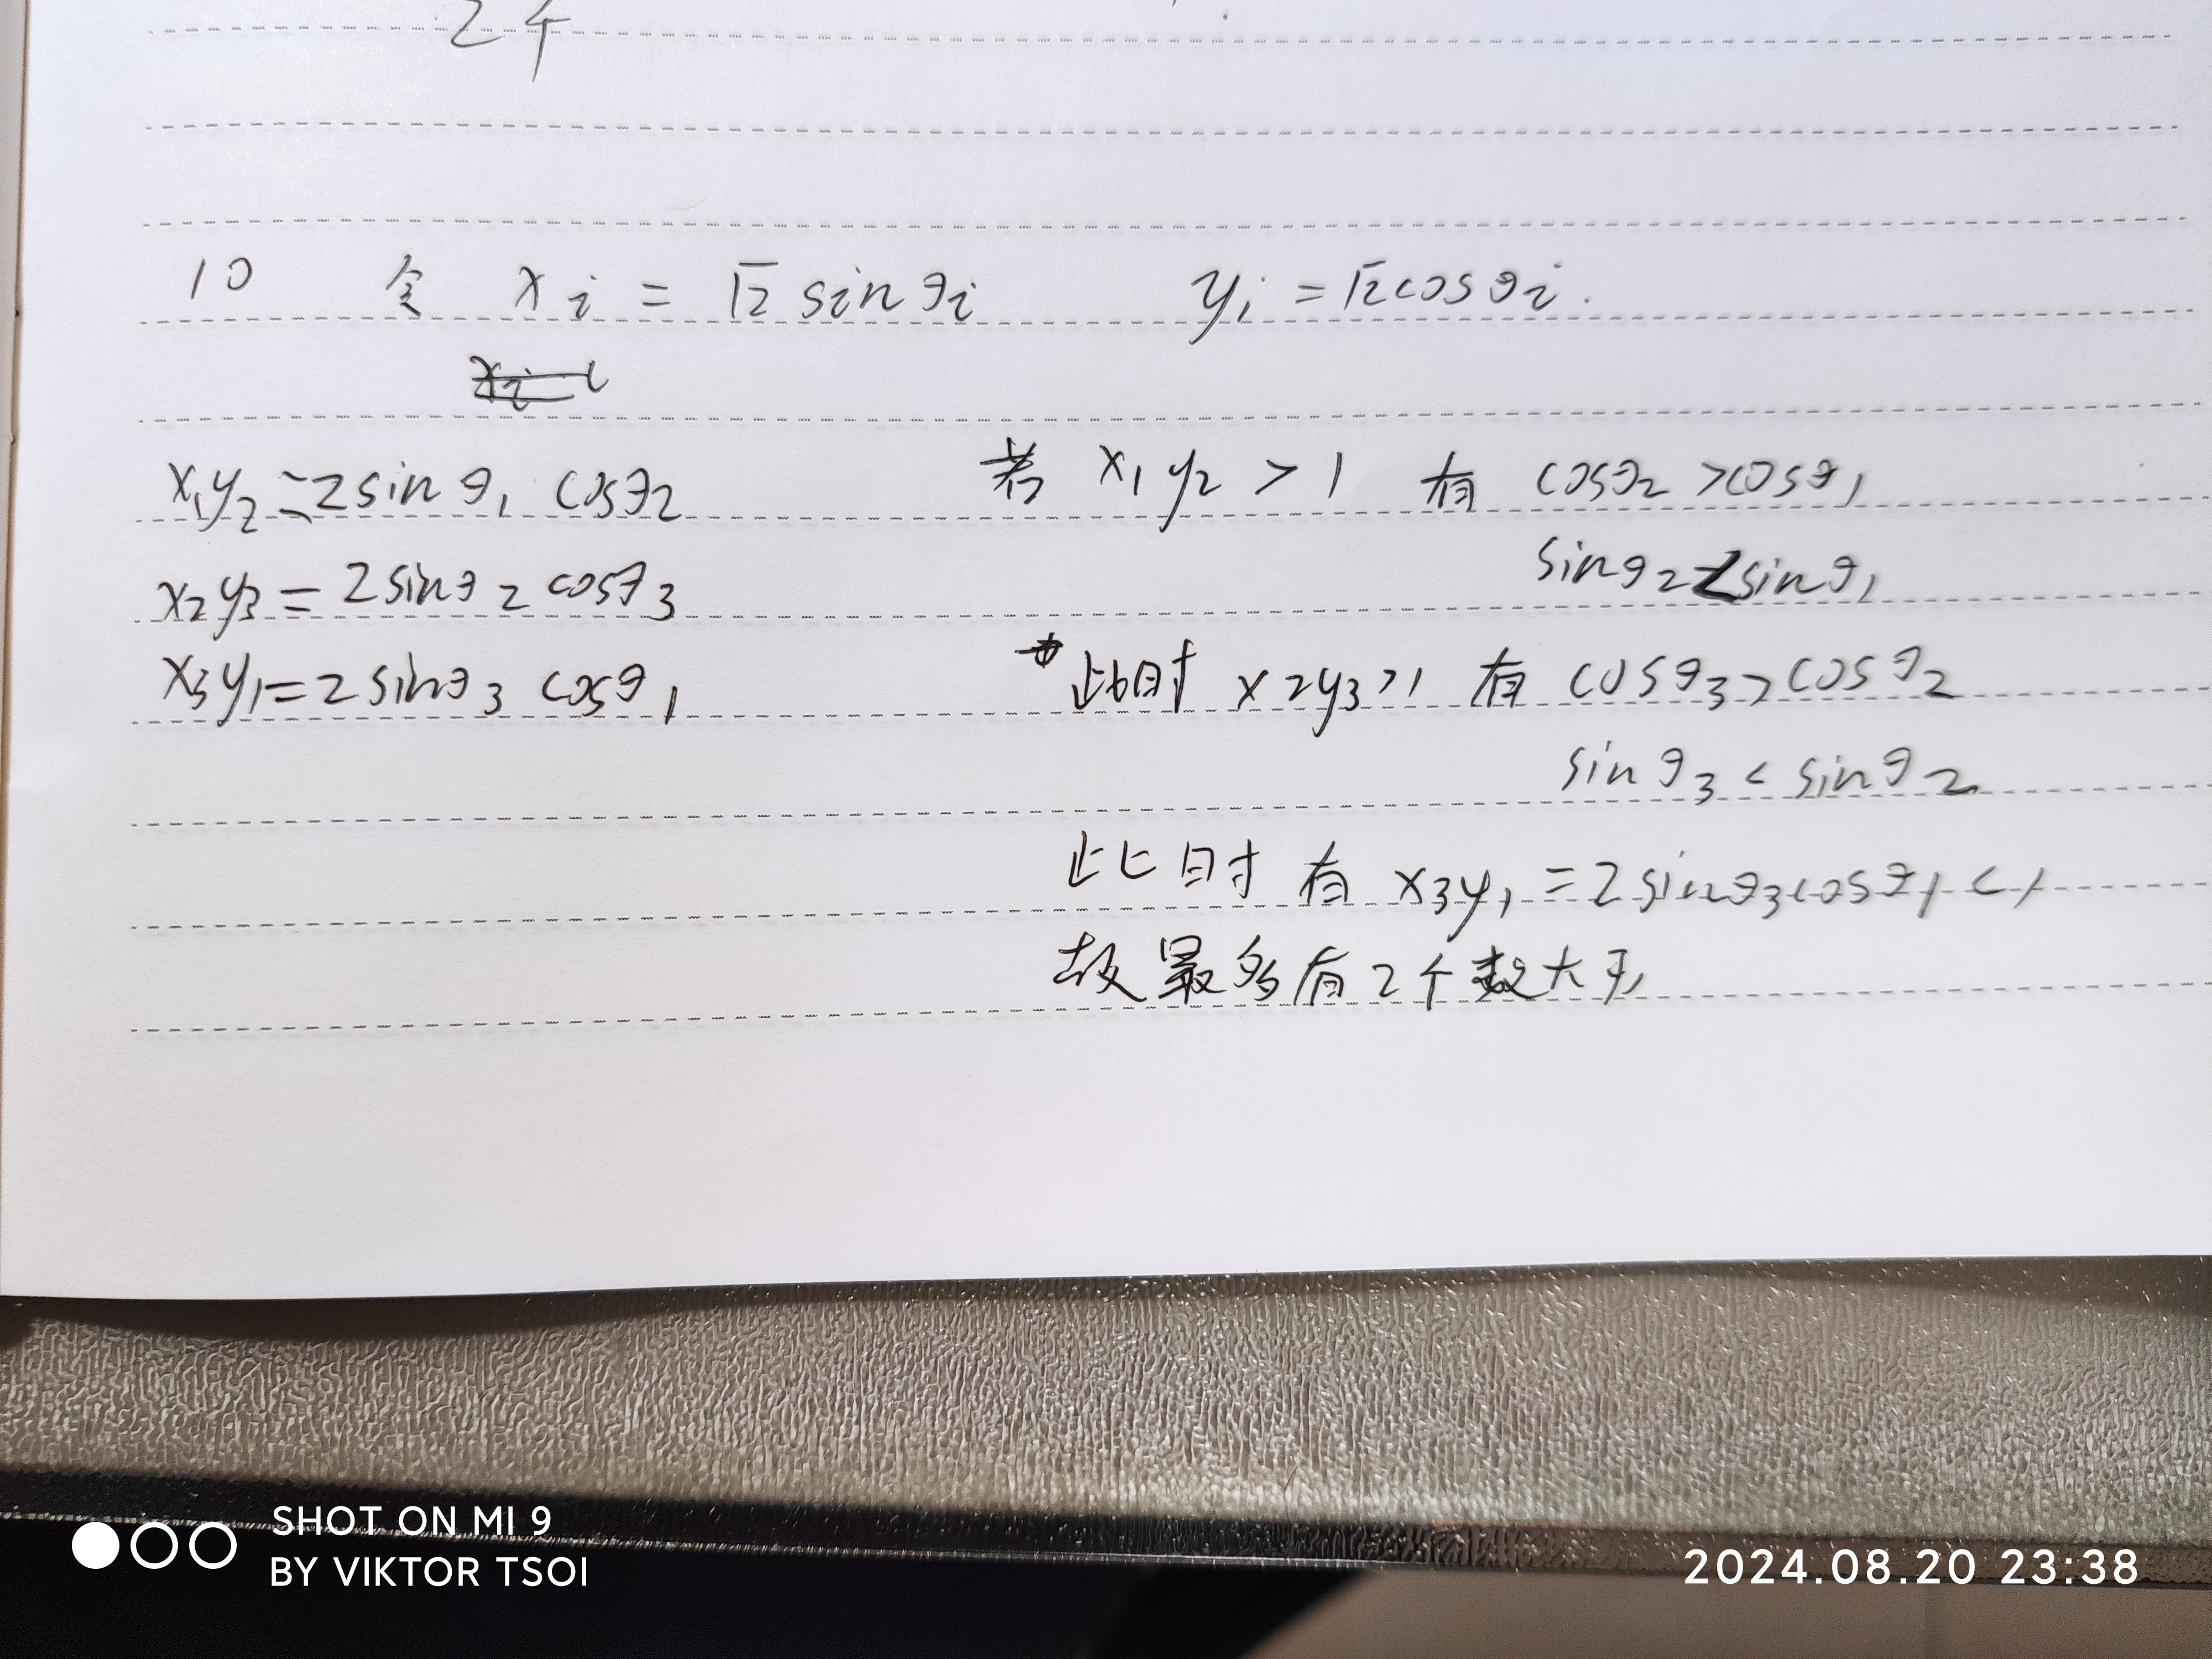 2个
10 令 xi = √2 sinθi yi = √2cosθi.
x1y2=2sinθ1 cosθ2 若 x1y2 > 1 有 cosθ2 >cosθ1
sinθ2<sinθ1
x2y3 = 2sinθ2 cosθ3
x3y1=2sinθ3 cosθ1 此时 x2y3>1 有 cosθ3>cosθ2
sinθ3 < sinθ2
此时有 x3y1 =2sinθ3cosθ1 <1
故最多有2个数大于1
SHOT ON MI 9
BY VIKTOR TSOI
2024.08.20 23:38